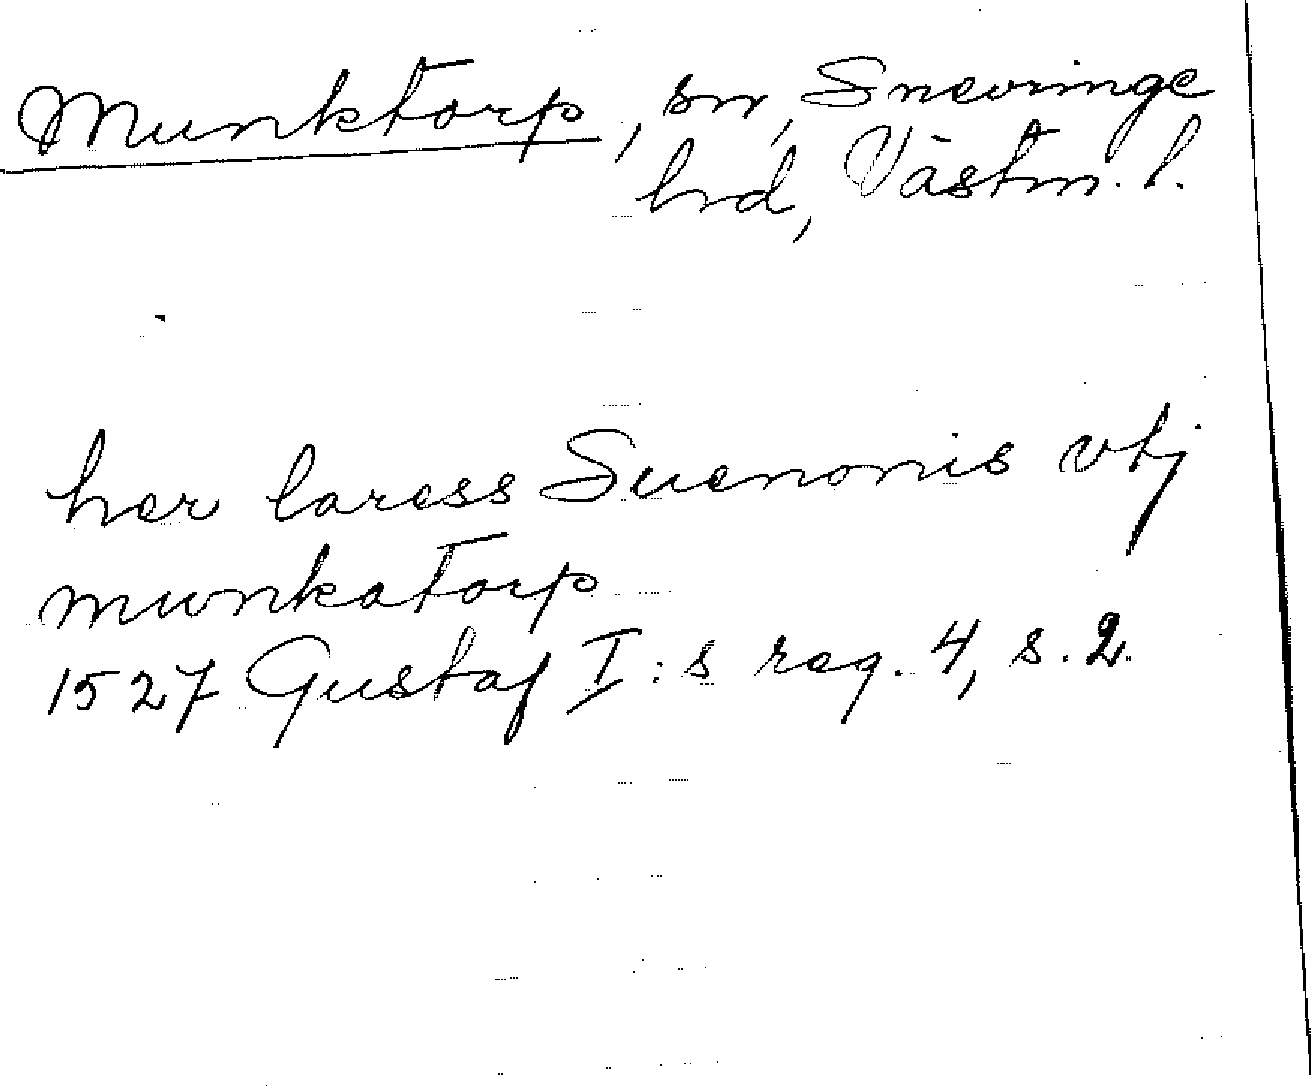 Munktorp, sn, Snevringe
hrd, Västm. l.
her laress Suenonis vtj
munkatorp
1527 Gustaf I:s reg. 4, s. 2.